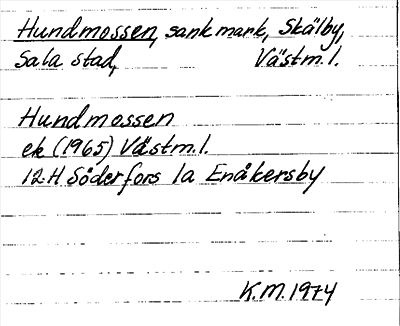 Hundmossen, sank mark, Skälby,
Sala stad, Västm.l.
Hundmossen
ek (1965) Västm.l.
12 H Söderfors 1a Enåkersby
K.M. 1974